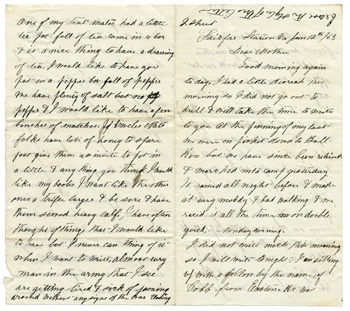 2 Sheet
Fairfax Station Va Jan 18th / 63
Dear Mother
Good morning again
to day, I had a little diareah this
morning so I did not go out to
drill & will take the time to write
to you at the finishing of my last
we were on picket down to Bull
Run but we have since been relieved
& marched into camp yesterday
It rained all night before & made
it very muddy & bad walking & we
raced it all the time on double
quick. Monday evening.
I did not write much this morning
so I will write tonight. I am sitting
up with a fellow by the name of
from
One of my tent mates had a little
tea pot full of tea came in a box
& it is a nice thing to have a drawing
of tea. I would like to have you
put in a pepper box full of pepper
we have plenty of salt but no
pepper & I would like to have a few
bunches of matches. If Uncles
folks have lots of honey to spare
just give them an invite to put in
a little & any thing you think I would
like my boots I want like the other
ones a trifle larger & be sure & have
them sewed heavy calf, I have often
thought of things that I would like
to have but I never can think of it
when I want to write, almost every
man in the army that I see
are getting tired & sick of
around without any signs of the war ending